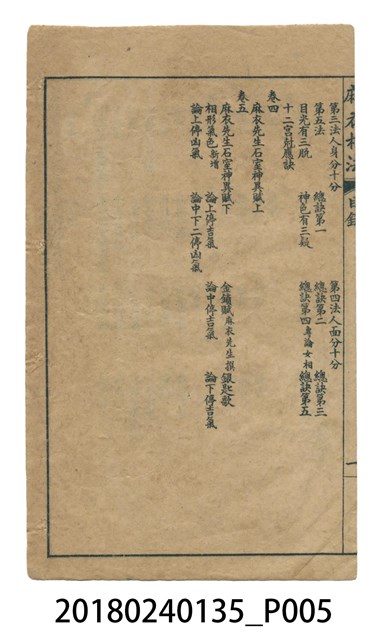 麻衣相法 目錄 一
第三法人身分十分 第四法人面分十分
第五法 總訣第一 總訣第二 總訣第三
目光有三脫 神色有三疑 總訣第四專論女相 總訣第五
十二宮尅應訣
卷四
麻衣先生石室神異賦上
卷五
麻衣先生石室神異賦下 金鎖賦麻衣先生撰 銀匙歌
相形氣色新增 論上停吉氣 論中停吉氣 論下停吉氣
論上停凶氣 論中下二停凶氣
20180240135_P005